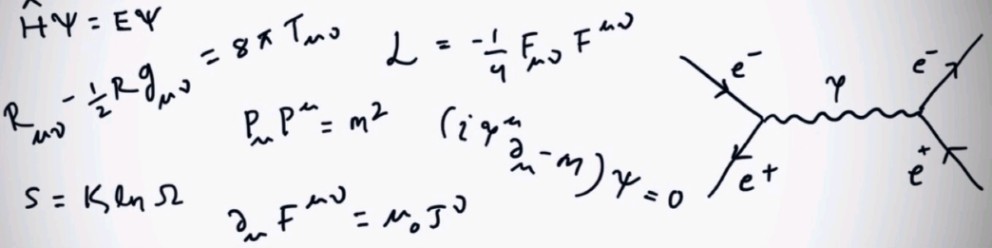 ĤΨ = EΨ
R_μν - ½ R g_μν = 8π T_μν
L = -¼ F_μν F^μν
P_μ P^μ = m²
(iγ^μ ∂_μ - m)ψ = 0
S = K ln Ω
∂_μ F^μν = μ₀ J^ν
e⁻
e⁺
γ
e⁻
e⁺